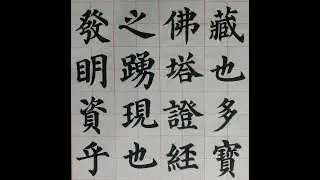 藏也多寶
佛塔證經
之踴現也
發明資乎